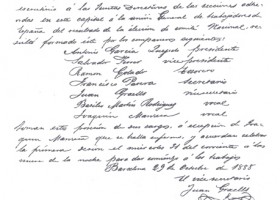 á las Juntas Directivas de las secciones adheridas
en esta capital á la Unión General de Trabajadores
España del resultado de la elección de comité Nacional, re-
sultó formado este de los compañeros siguientes:
Antonio García Quejido presidente
Salvador Ferrer vicepresidente
Ramon Colado tesorero
Francisco secretario
Juan Graells vicesecretario
Basilio Martín Rodríguez vocal
Joaquin Manresa vocal
tomar este posesión de sus cargos, á excepción de
Manresa que se halla enfermo, y acuerdan celebrar
la primera sesión el miércoles 31 del corriente á las
nueve de la noche para dar comienzo á los trabajos
Barcelona 29 Octubre de 1888
El vicesecretario
Juan Graells